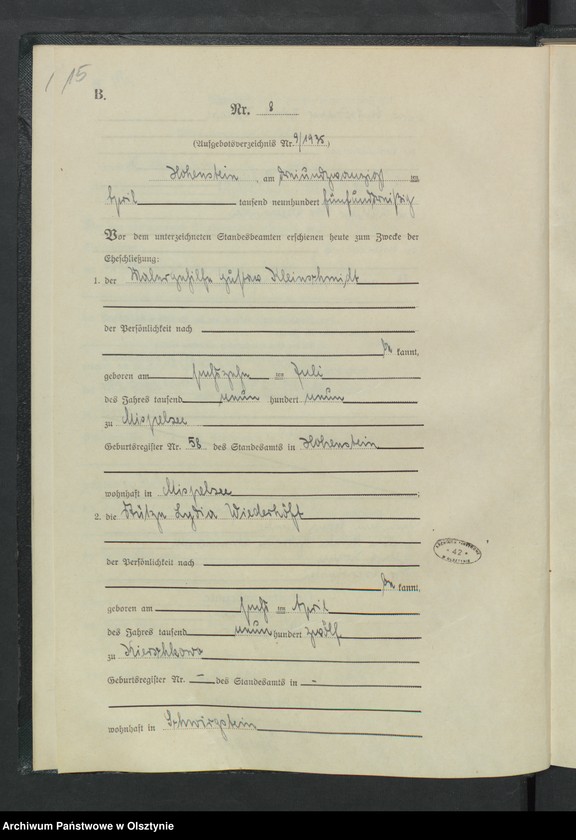 1/15
B.
Nr. 8
(Aufgebotsverzeichnis Nr. 9/1935)
Hohenstein, am dreiundzwanzig ten
April tausend neunhundert fünfunddreißig
Vor dem unterzeichneten Standesbeamten erschienen heute zum Zwecke der
Eheschließung:
1. der Malergehilfe Gustav Kleinschmidt
der Persönlichkeit nach
be kannt,
geboren am sechszehn ten Juli
des Jahres tausend neun hundert neun
zu Mispelsee
Geburtsregister Nr. 58 des Standesamts in Hohenstein
wohnhaft in Mispelsee;
2. die Stütze Lydia Wiederhöft
der Persönlichkeit nach
be kannt,
geboren am sechs ten April
des Jahres tausend neun hundert zwölf
zu
Geburtsregister Nr. – des Standesamts in –
wohnhaft in Schwirgstein
42
Archiwum Państwowe w Olsztynie